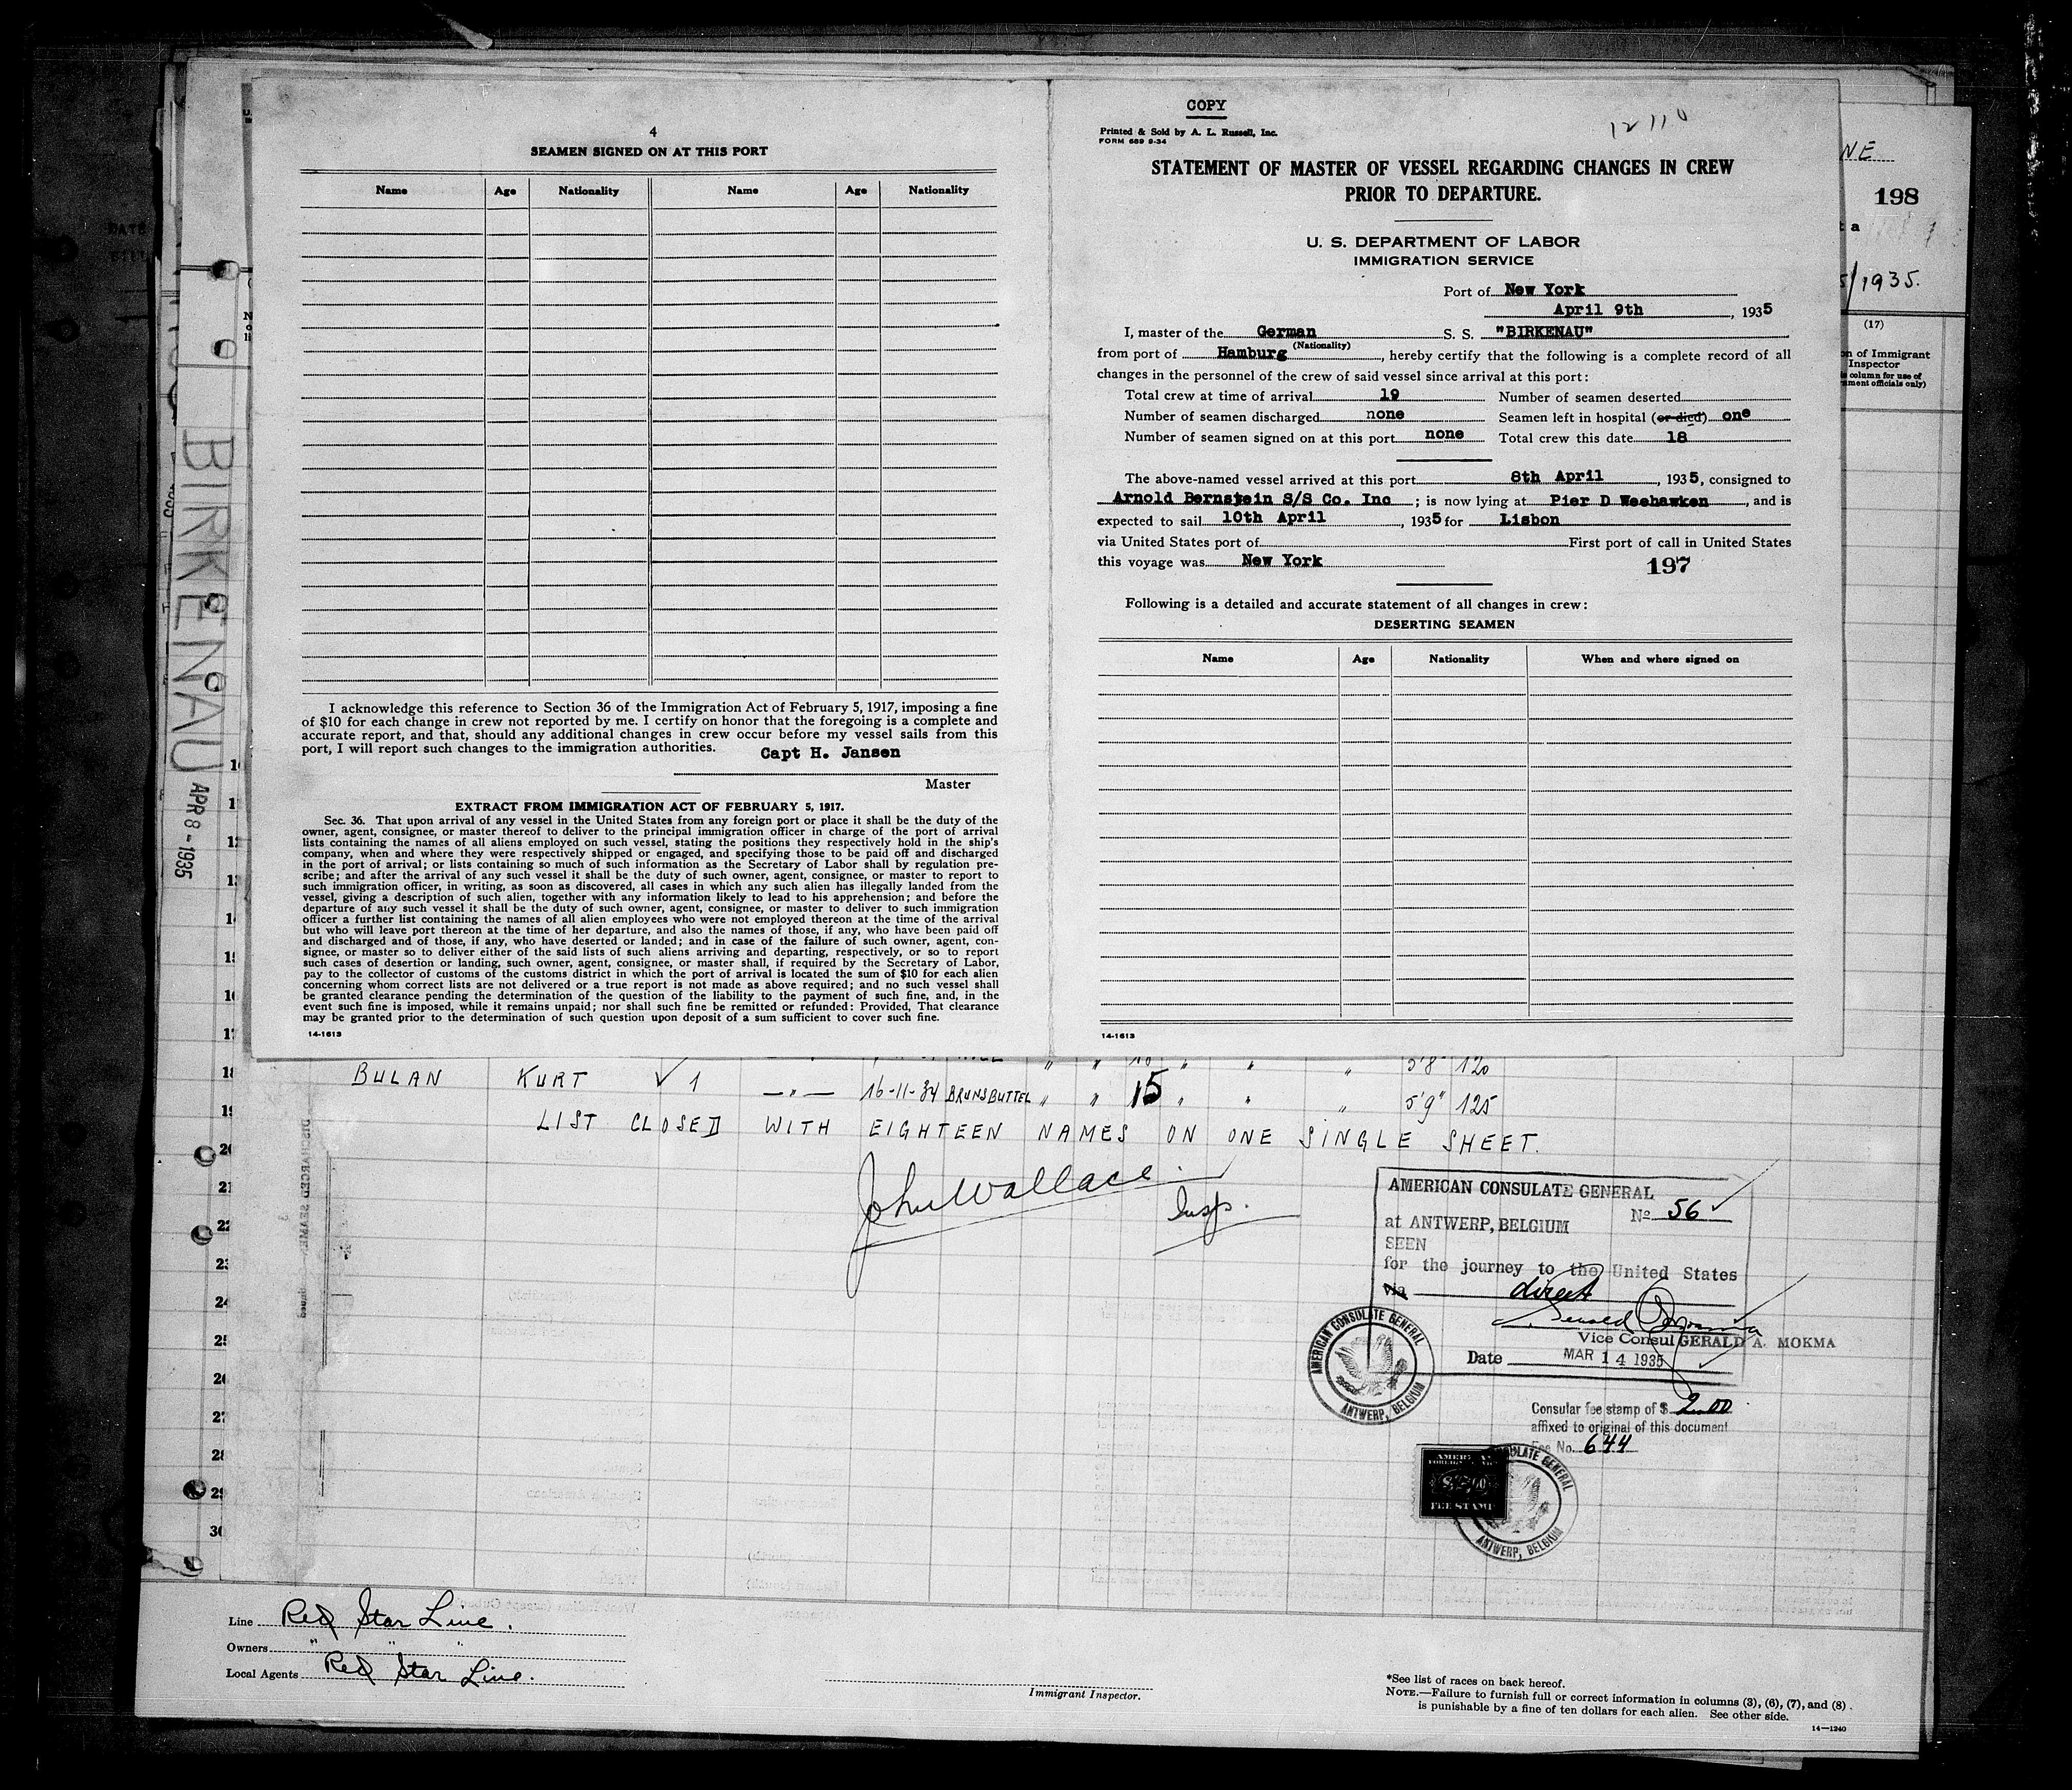 4
SEAMEN SIGNED ON AT THIS PORT
Name Age Nationality Name Age Nationality
I acknowledge this reference to Section 36 of the Immigration Act of February 5, 1917, imposing a fine
of $10 for each change in crew not reported by me. I certify on honor that the foregoing is a complete and
accurate report, and that, should any additional changes in crew occur before my vessel sails from this
port, I will report such changes to the immigration authorities.
Capt H. Jansen
Master
EXTRACT FROM IMMIGRATION ACT OF FEBRUARY 5, 1917.
Sec. 36. That upon arrival of any vessel in the United States from any foreign port or place it shall be the duty of the
owner, agent, consignee, or master thereof to deliver to the principal immigration officer in charge of the port of arrival
lists containing the names of all aliens employed on such vessel, stating the positions they respectively hold in the ship's
company, when and where they were respectively shipped or engaged, and specifying those to be paid off and discharged
in the port of arrival; or lists containing so much of such information as the Secretary of Labor shall by regulation pre-
scribe; and after the arrival of any such vessel it shall be the duty of such owner, agent, consignee, or master to report to
such immigration officer, in writing, as soon as discovered, all cases in which any such alien has illegally landed from the
vessel, giving a description of such alien, together with any information likely to lead to his apprehension; and before the
departure of any such vessel it shall be the duty of such owner, agent, consignee, or master to deliver to such immigration
officer a further list containing the names of all alien employees who were not employed thereon at the time of the arrival
but who will leave port thereon at the time of her departure, and also the names of those, if any, who have been paid off
and discharged and of those, if any, who have deserted or landed; and in case of the failure of such owner, agent, con-
signee, or master so to deliver either of the said lists of such aliens arriving and departing, respectively, or so to report
such cases of desertion or landing, such owner, agent, consignee, or master shall, if required by the Secretary of Labor,
pay to the collector of customs of the customs district in which the port of arrival is located the sum of $10 for each alien
concerning whom correct lists are not delivered or a true report is not made as above required; and no such vessel shall
be granted clearance pending the determination of the question of the liability to the payment of such fine, and, in the
event such fine is imposed, while it remains unpaid; nor shall such fine be remitted or refunded: Provided, That clearance
may be granted prior to the determination of such question upon deposit of a sum sufficient to cover such fine.
14-1613
COPY
Printed & Sold by A. L. Russell, Inc.
FORM 689 9-34
12110
STATEMENT OF MASTER OF VESSEL REGARDING CHANGES IN CREW
PRIOR TO DEPARTURE.
U. S. DEPARTMENT OF LABOR
IMMIGRATION SERVICE
Port of New York
April 9th, 1935
I, master of the German S. S. "BIRKENAU"
(Nationality)
from port of Hamburg, hereby certify that the following is a complete record of all
changes in the personnel of the crew of said vessel since arrival at this port:
Total crew at time of arrival 19 Number of seamen deserted
Number of seamen discharged none Seamen left in hospital (or died) one
Number of seamen signed on at this port none Total crew this date 18
The above-named vessel arrived at this port 8th April, 1935, consigned to
Arnold Bernstein S/S Co. Inc; is now lying at Pier D Weehawken, and is
expected to sail 10th April, 1935 for Lisbon
via United States port of First port of call in United States
this voyage was New York
197
Following is a detailed and accurate statement of all changes in crew:
DESERTING SEAMEN
Name Age Nationality When and where signed on
14-1613
NE
198
ta
5/1935.
(17)
on of Immigrant
Inspector
column for use of
ment officials only)
BIRKENAU
APR 8-1935
5'8" 120
BULAN KURT √ 1 —"— 16-11-34 BRUNSBUTTEL " " 15 " " " 5'9" 125
LIST CLOSED WITH EIGHTEEN NAMES ON ONE SINGLE SHEET.
John Wallace
Insp.
18
19
20
21
22
23
24
25
26
27
28
29
30
AMERICAN CONSULATE GENERAL
No 56 ✓
at ANTWERP, BELGIUM
SEEN
for the journey to the United States
via direct
Vice Consul GERALD A. MOKMA
Date MAR 14 1935
AMERICAN CONSULATE GENERAL
ANTWERP, BELGIUM
Consular fee stamp of $ 2.00
affixed to original of this document
Fee No. 644
FEE STAMP
CONSULATE GENERAL
ANTWERP, BELGIUM
Line Red Star Line.
Owners " " "
Local Agents Red Star Line.
Immigrant Inspector.
*See list of races on back hereof.
NOTE.—Failure to furnish full or correct information in columns (3), (6), (7), and (8)
is punishable by a fine of ten dollars for each alien. See other side.
14—1240